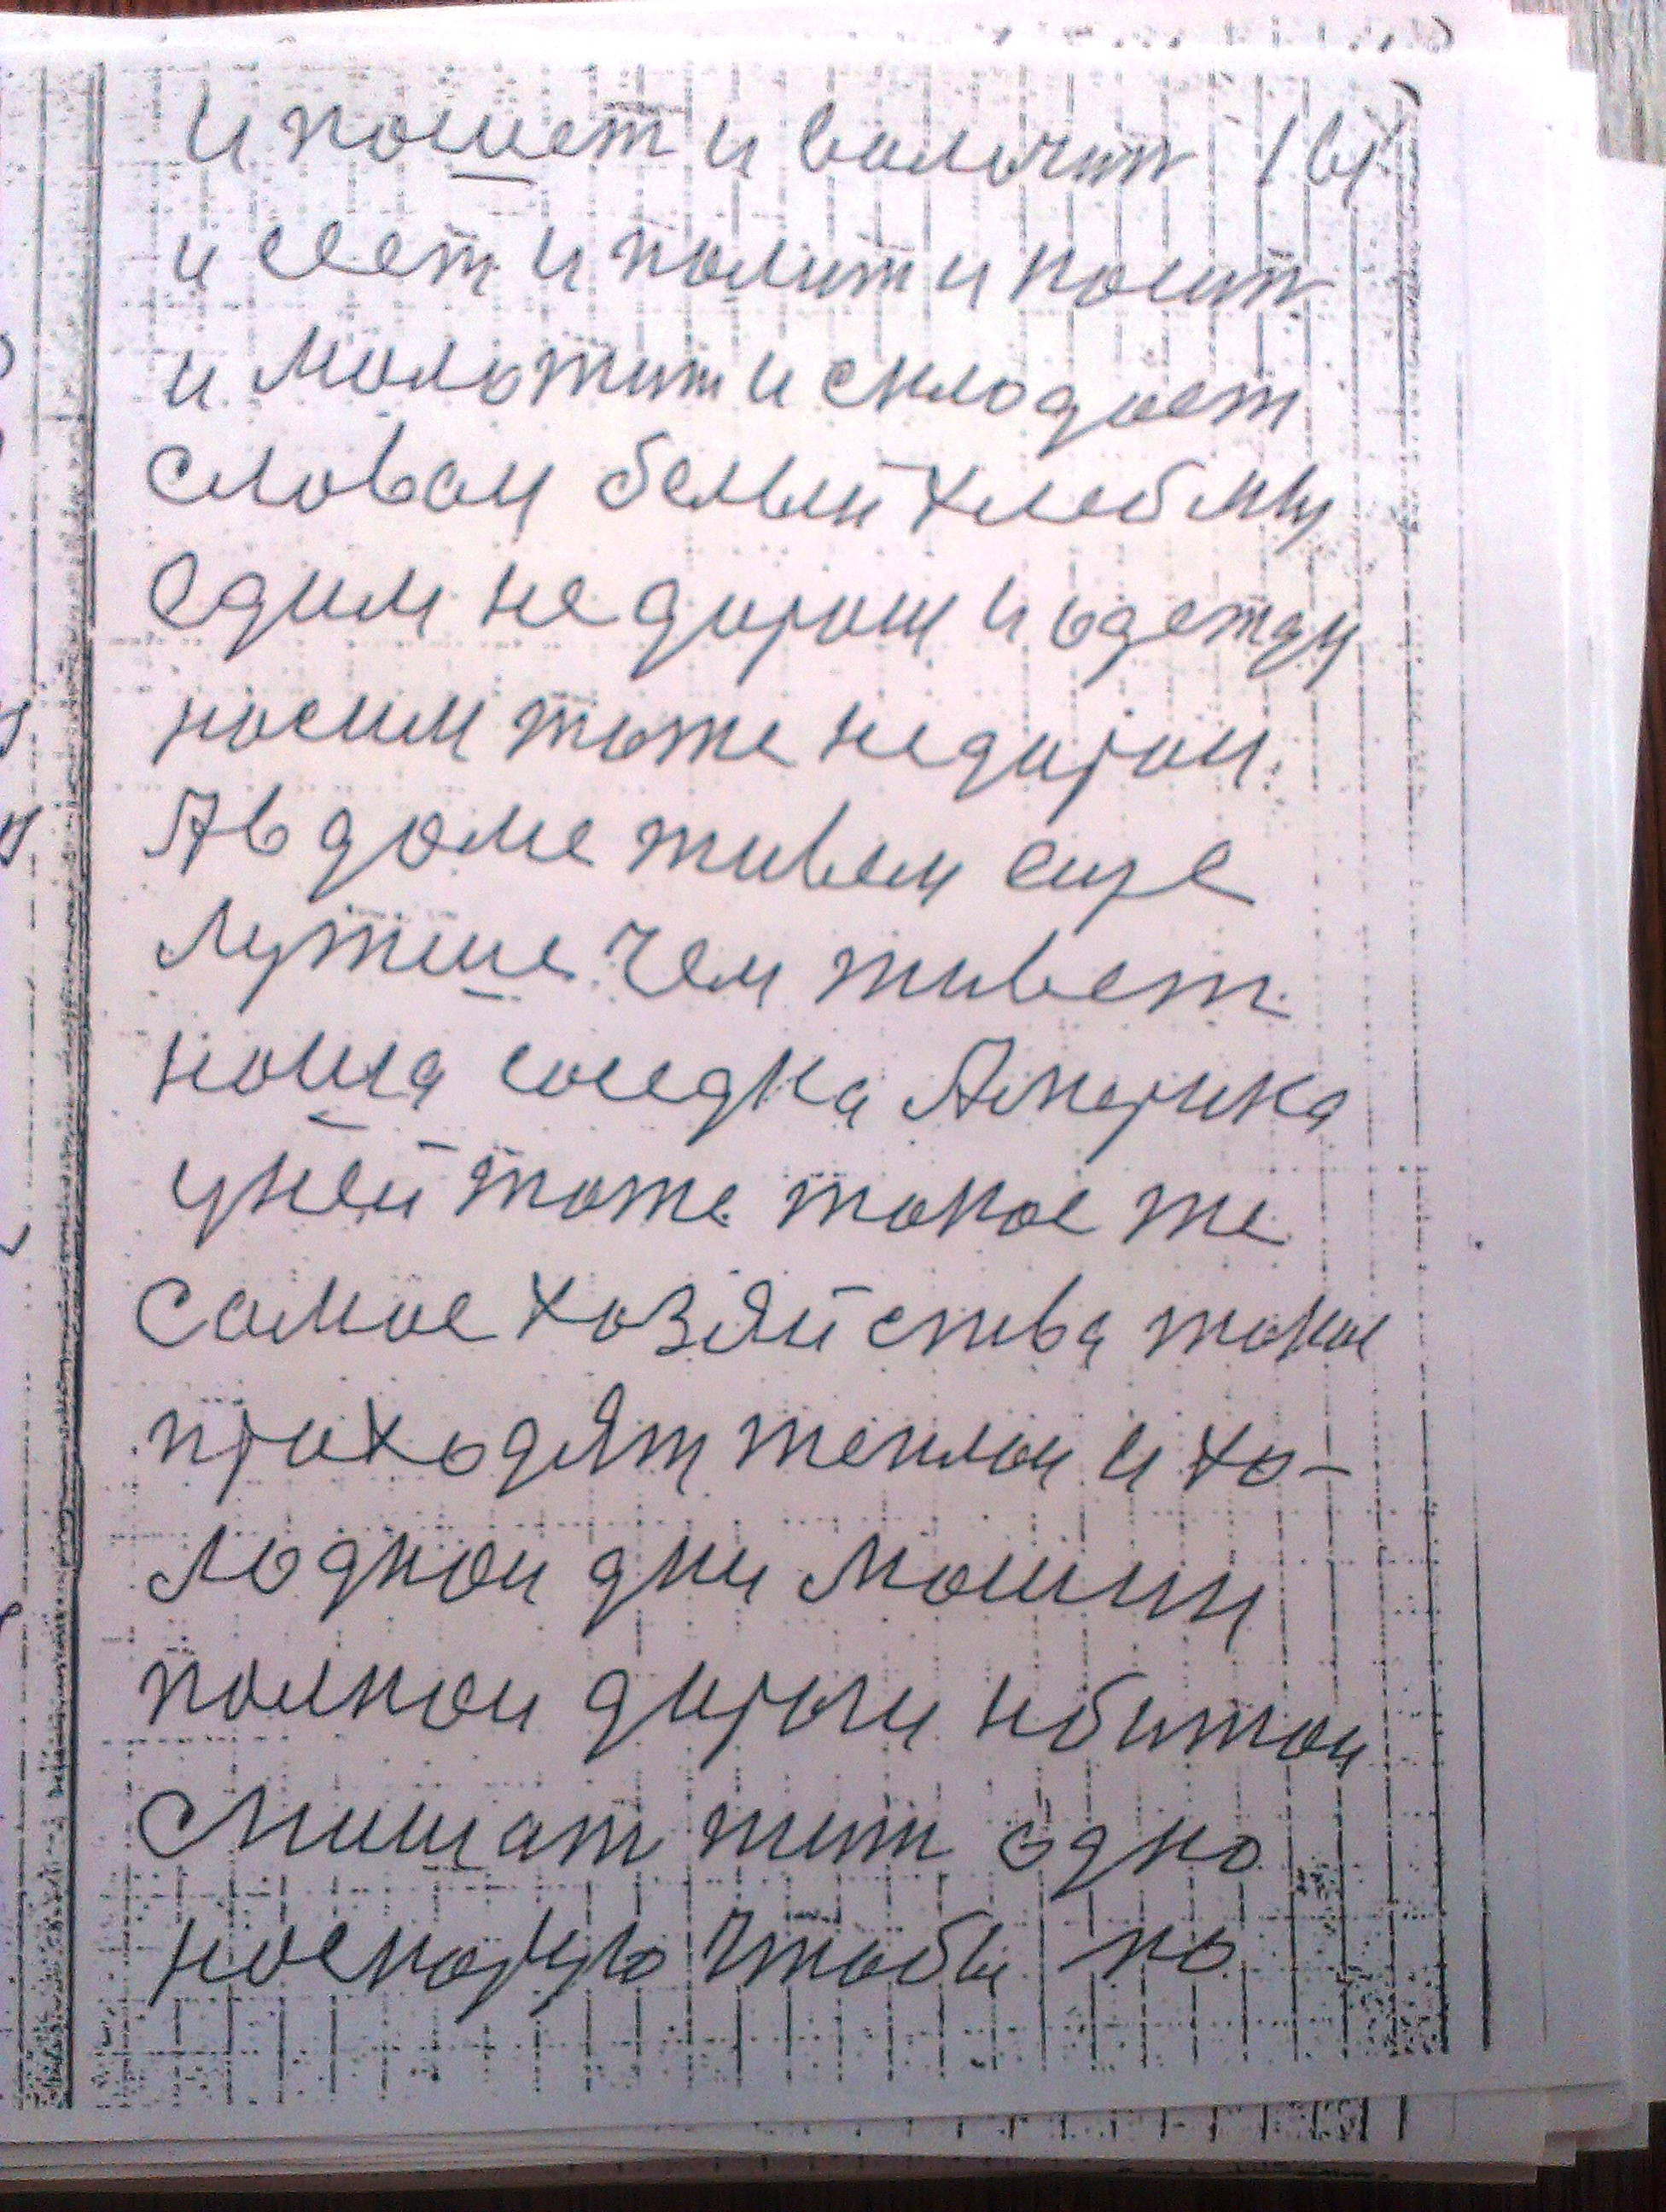 и пошет и валочит 161
и сеет и полит и косит
и молотит и склодает
словом белый хлеб мы
едим не дорош и одежду
носим тоже не дорои.
А в доме живем еще
лутше чем живет
ноша соседка Америка
у ней тоже токое же
самое хозяйства токое
проходят теплои и хо-
лоднои дни мошины
полнои дороги
жит одно
чтобы по